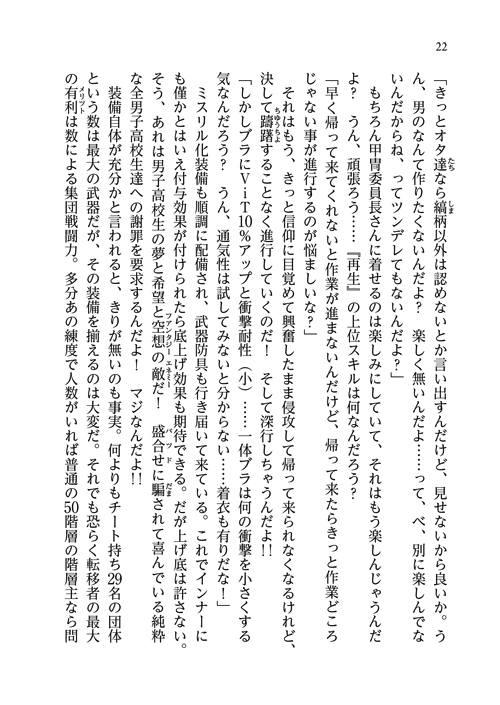 22
「きっとオタ達なら縞柄以外は認めないとか言い出すんだけど、見せないから良いか。う
ん、男のなんて作りたくないんだよ？　楽しく無いんだよ……って、べ、別に楽しんでな
いんだからね、ってツンデレてもないんだよ？」
　もちろん甲冑委員長さんに着せるのは楽しみにしていて、それはもう楽しんじゃうんだ
よ？　うん、頑張ろう……『再生』の上位スキルは何なんだろう？
「早く帰って来てくれないと作業が進まないんだけど、帰って来たらきっと作業どころ
じゃない事が進行するのが悩ましいな？」
　それはもう、きっと信仰に目覚めて興奮したまま侵攻して帰って来られなくなるけれど、
決して躊躇することなく進行していくのだ！　そして深行しちゃうんだよ!!
「しかしブラにViT10％アップと衝撃耐性（小）……一体ブラは何の衝撃を小さくする
気なんだろう？　うん、通気性は試してみないと分からない……着衣も有りだな！」
　ミスリル化装備も順調に配備され、武器防具も行き届いて来ている。これでインナーに
も僅かとはいえ付与効果が付けられたら底上げ効果も期待できる。だが上げ底は許さない。
そう、あれは男子高校生の夢と希望と空想の敵だ！　盛合せに騙されて喜んでいる純粋
な全男子高校生達への謝罪を要求するんだよ！　マジなんだよ!!
　装備自体が充分かと言われると、きりが無いのも事実。何よりもチート持ち29名の団体
という数は最大の武器だが、その装備を揃えるのは大変だ。それでも恐らく転移者の最大
の有利は数による集団戦闘力。多分あの練度で人数がいれば普通の50階層の階層主なら問